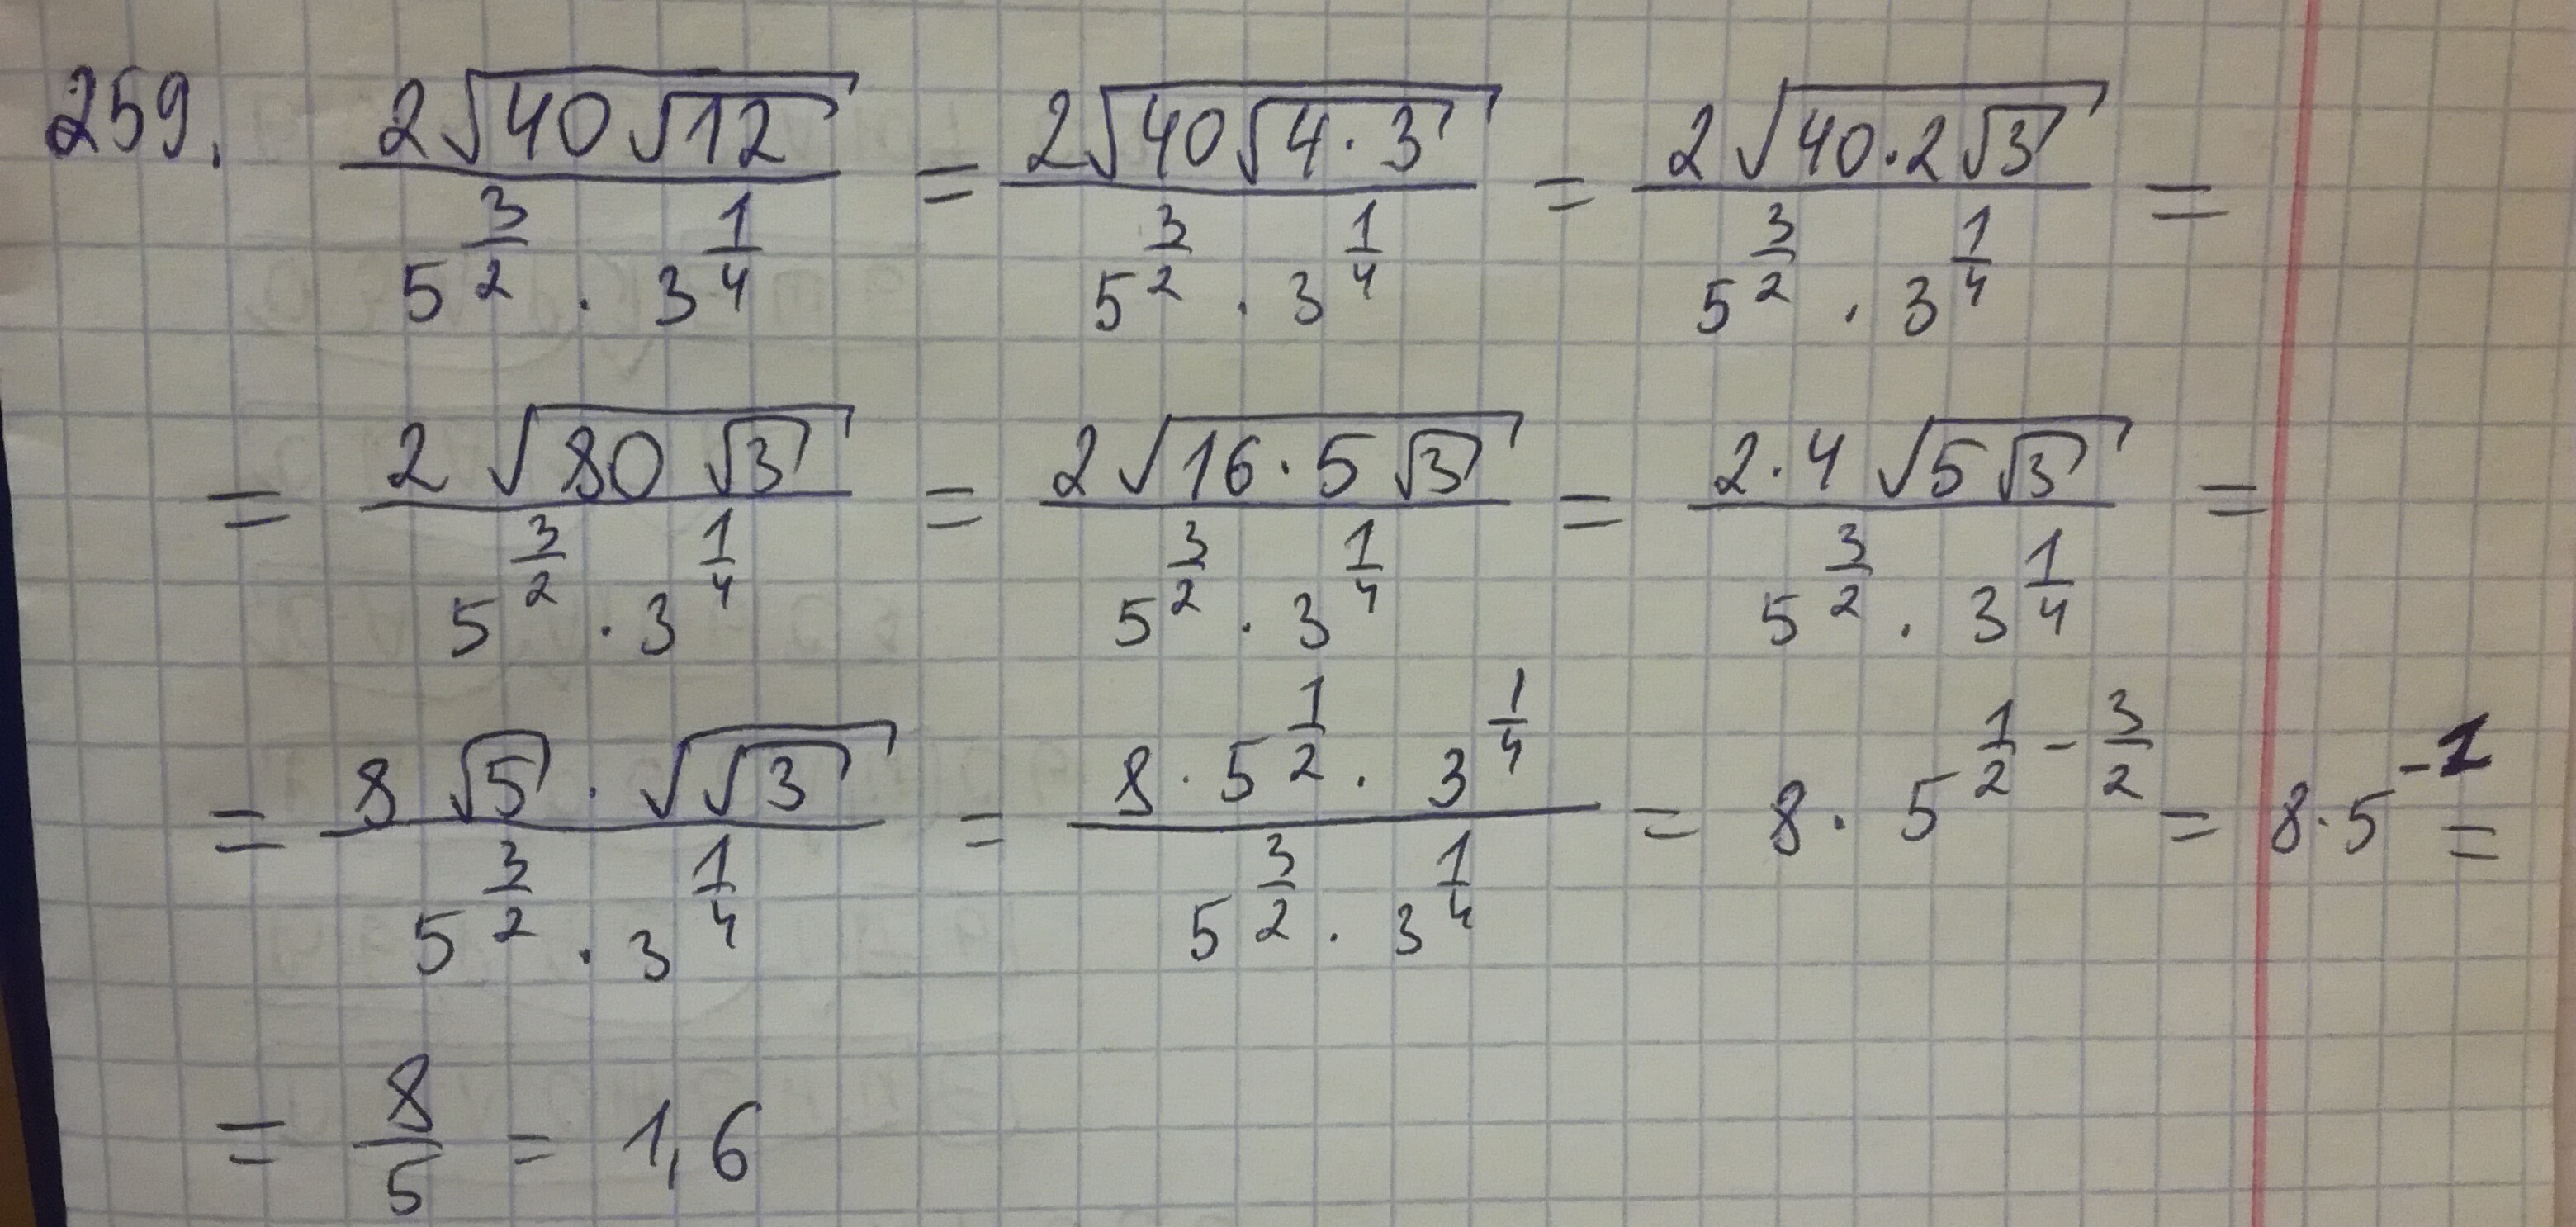 259. \frac{2\sqrt{40\sqrt{12}}}{5^{\frac{3}{2}} \cdot 3^{\frac{1}{4}}} = \frac{2\sqrt{40\sqrt{4 \cdot 3}}}{5^{\frac{3}{2}} \cdot 3^{\frac{1}{4}}} = \frac{2\sqrt{40 \cdot 2\sqrt{3}}}{5^{\frac{3}{2}} \cdot 3^{\frac{1}{4}}} =
= \frac{2\sqrt{80\sqrt{3}}}{5^{\frac{3}{2}} \cdot 3^{\frac{1}{4}}} = \frac{2\sqrt{16 \cdot 5\sqrt{3}}}{5^{\frac{3}{2}} \cdot 3^{\frac{1}{4}}} = \frac{2 \cdot 4\sqrt{5\sqrt{3}}}{5^{\frac{3}{2}} \cdot 3^{\frac{1}{4}}} =
= \frac{8\sqrt{5} \cdot \sqrt{\sqrt{3}}}{5^{\frac{3}{2}} \cdot 3^{\frac{1}{4}}} = \frac{8 \cdot 5^{\frac{1}{2}} \cdot 3^{\frac{1}{4}}}{5^{\frac{3}{2}} \cdot 3^{\frac{1}{4}}} = 8 \cdot 5^{\frac{1}{2} - \frac{3}{2}} = 8 \cdot 5^{-1} =
= \frac{8}{5} = 1,6